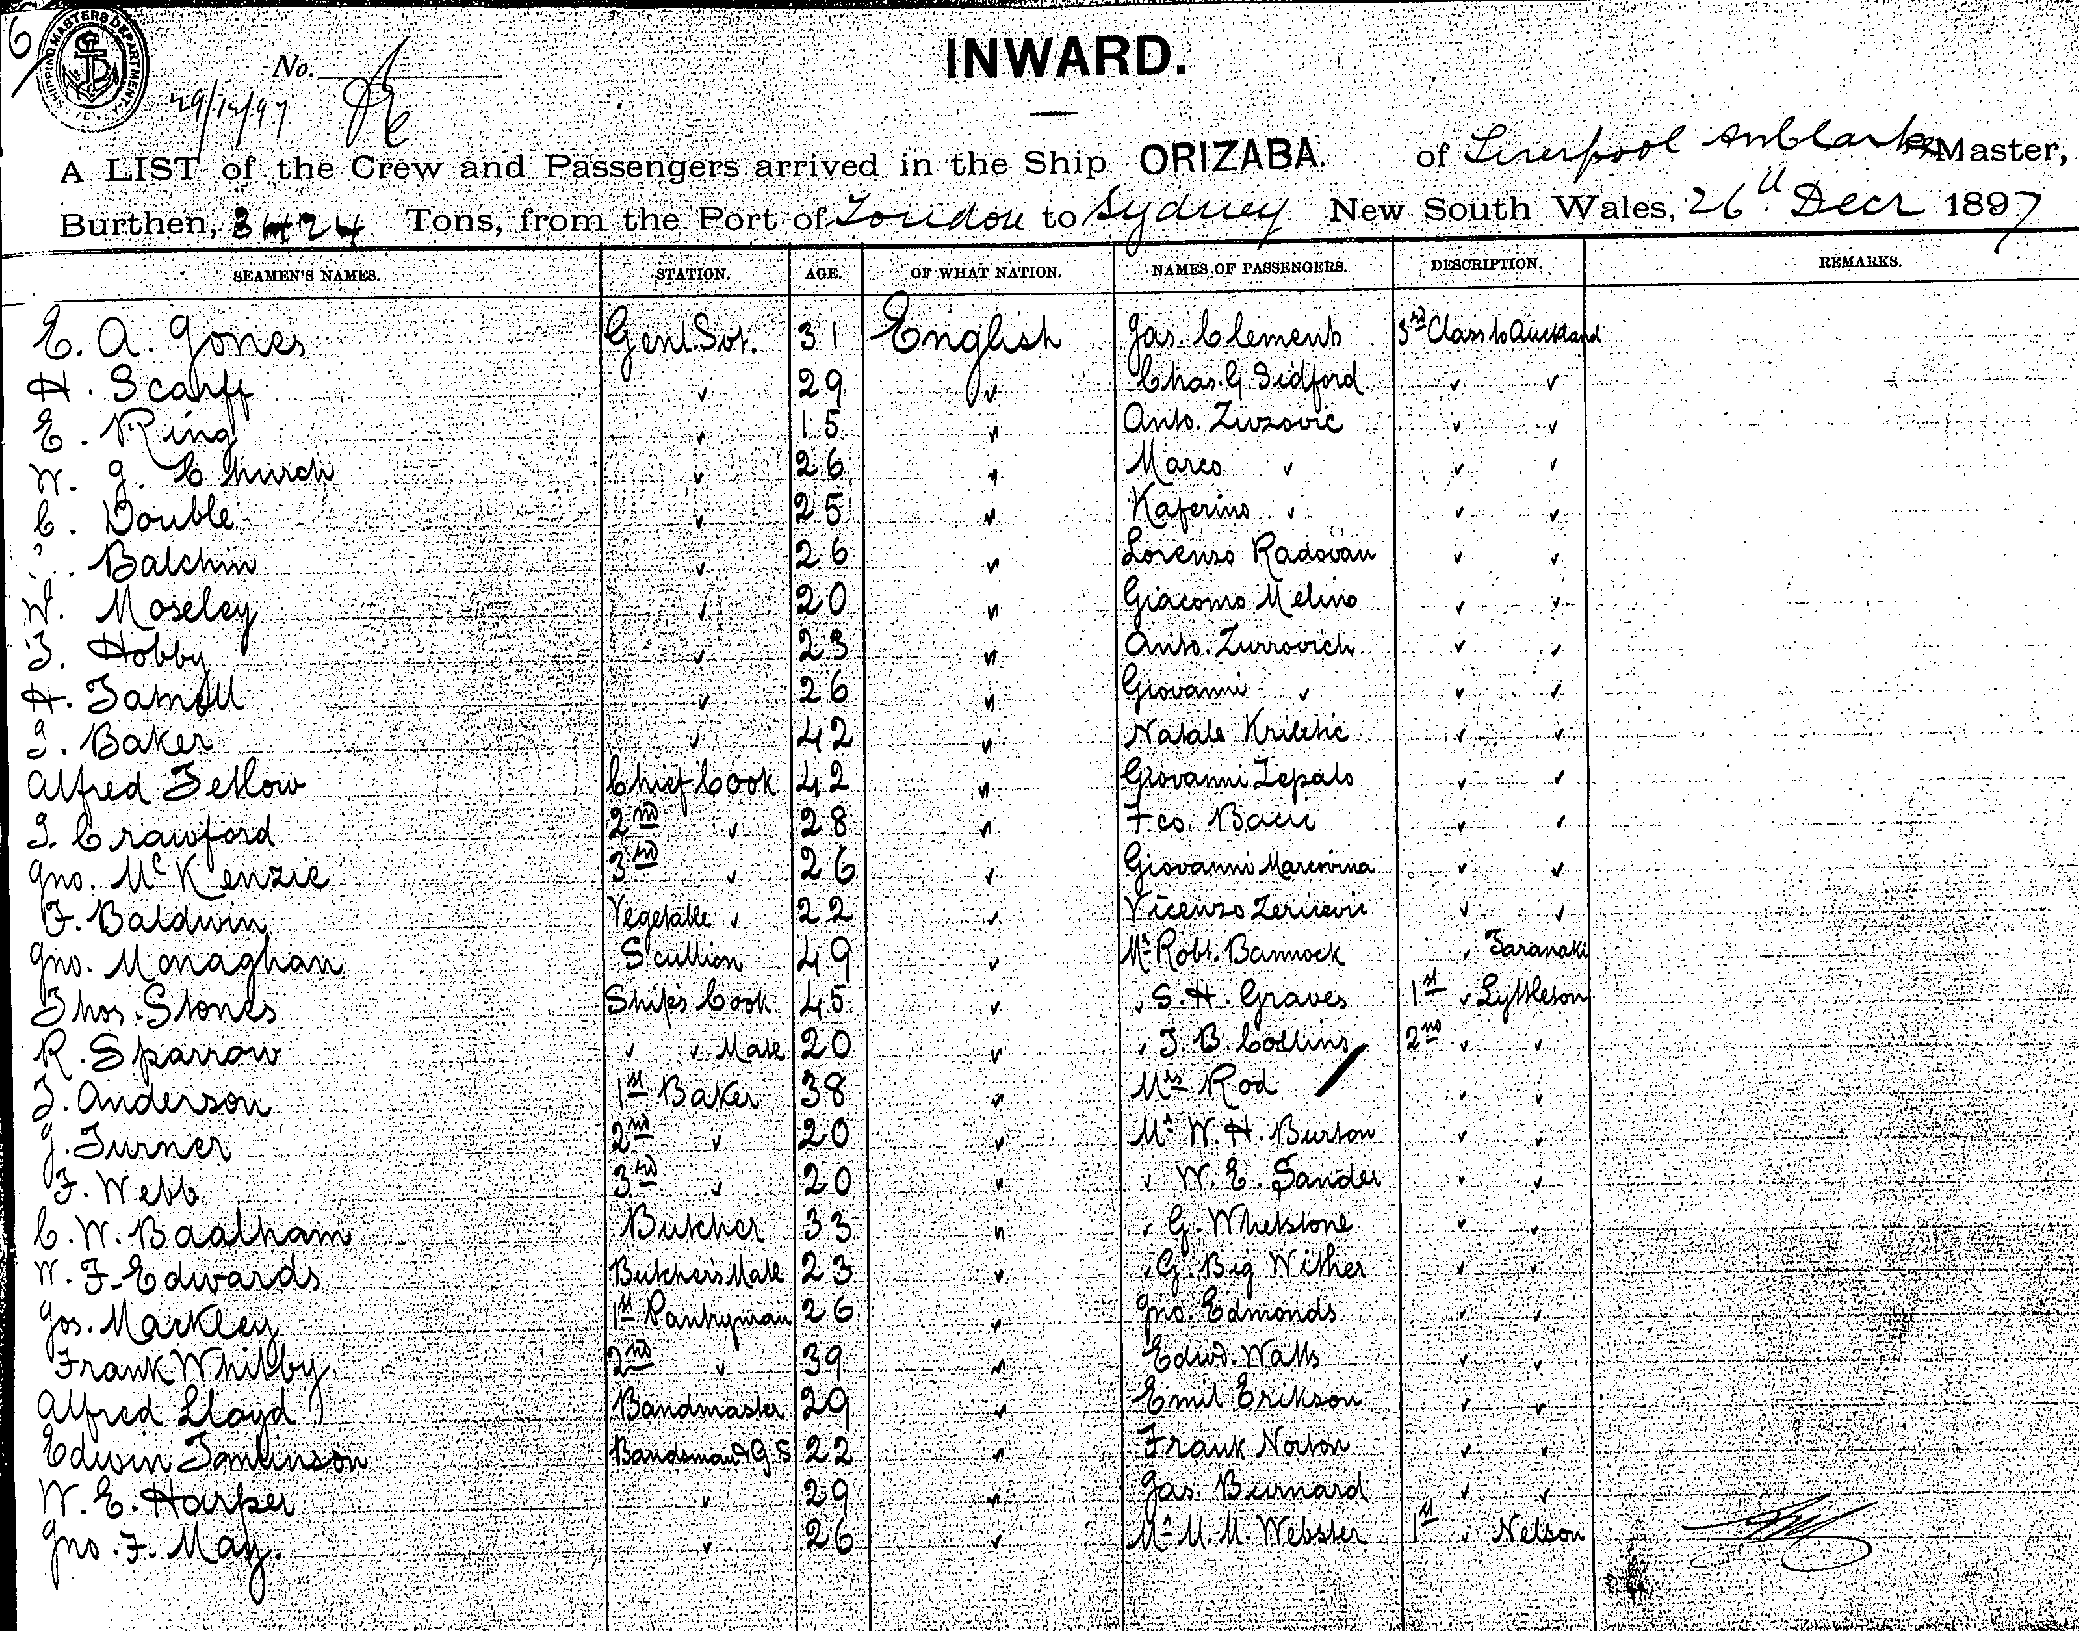 6
SHIPPING MASTERS DEPARTMENT
No.
29/12/97
INWARD.
A LIST of the Crew and Passengers arrived in the Ship ORIZABA. of Liverpool Master,
Burthen, 3424 Tons, from the Port of London to Sydney New South Wales, 26th Decr 1897
SEAMEN'S NAMES. STATION. AGE. OF WHAT NATION. NAMES OF PASSENGERS. DESCRIPTION. REMARKS.
E. A. Jones Genl. Svt. 31 English Jas. Clements 3rd Class to Auckland
H. Scarff " 29 " Chas. G. Sidford " "
E. Ring " 15 " Anto. Zivzovic " "
W. J. Church " 26 " Marco " " "
C. Double " 25 " Kaferino " " "
" Balchin " 26 " Lorenzo Radovan " "
W. Moseley " 20 " Giacomo Melino " "
T. Hobby " 23 " Anto. Zurrovich " "
H. " 26 " Giovanni " " "
T. Baker " 42 " Natale Kriletic " "
Alfred Tetlow Chief Cook 42 " Giovanni Zepalo " "
T. Crawford 2nd " 28 " Fco. "  "
Jno. McKenzie 3rd " 26 " Giovanni " "
F. Baldwin Vegetable " 22 " Vicenzo " "
Jno. Monaghan Scullion 49 " Mr. Robt. Bannock " Taranaki
Thos. Stones Ships Cook 45 " " S. H. Graves 1st " Lyttleton
R. Sparrow " " Mate 20 " " J. B. Collins 2nd " "
T. Anderson 1st Baker 38 " Mrs Rod " "
J. Turner 2nd " 20 " Mr. W. H. Burton " "
F. Webb 3rd " 20 " " W. E. Sander " "
C. W. Baalham Butcher 33 " " G. Whetstone " "
W. F. Edwards Butchers Mate 23 " " G. Big Wither " "
Jos. Markley 1st Pantryman 26 " Jno. Edmonds " "
Frank Whitby 2nd " 39 " Edwd. Watts " "
Alfred Lloyd Bandmaster 29 " Emil Erikson " "
Edwin Tomlinson Bandsman & G S 22 " Frank Norton " "
W. E. Harper " 29 " Jas. Burnard " "
Jno. F. May. " 26 " Mr. M. M. Webster 1st " Nelson